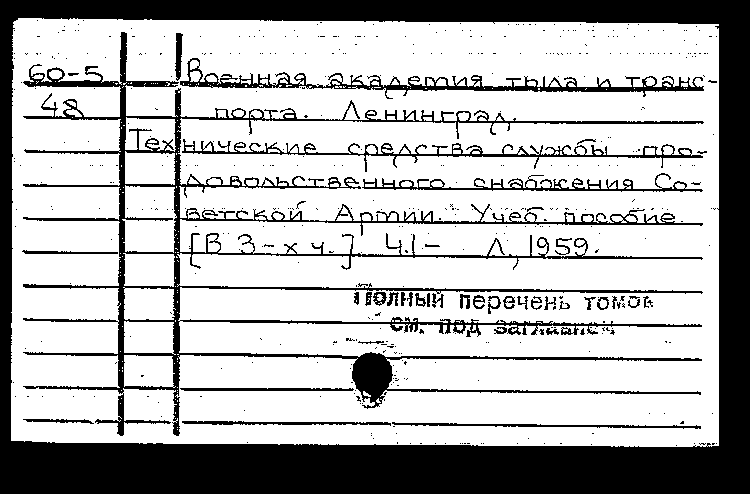 60-5 Военная академия тыла и транс-
48 порта. Ленинград.
Технические средства службы про-
довольственного снабжения Со-
ветской Армии. Учеб. пособие.
[В 3-х ч.] Ч.1- Л., 1959.
Полный перечень томов
см. под заглавием